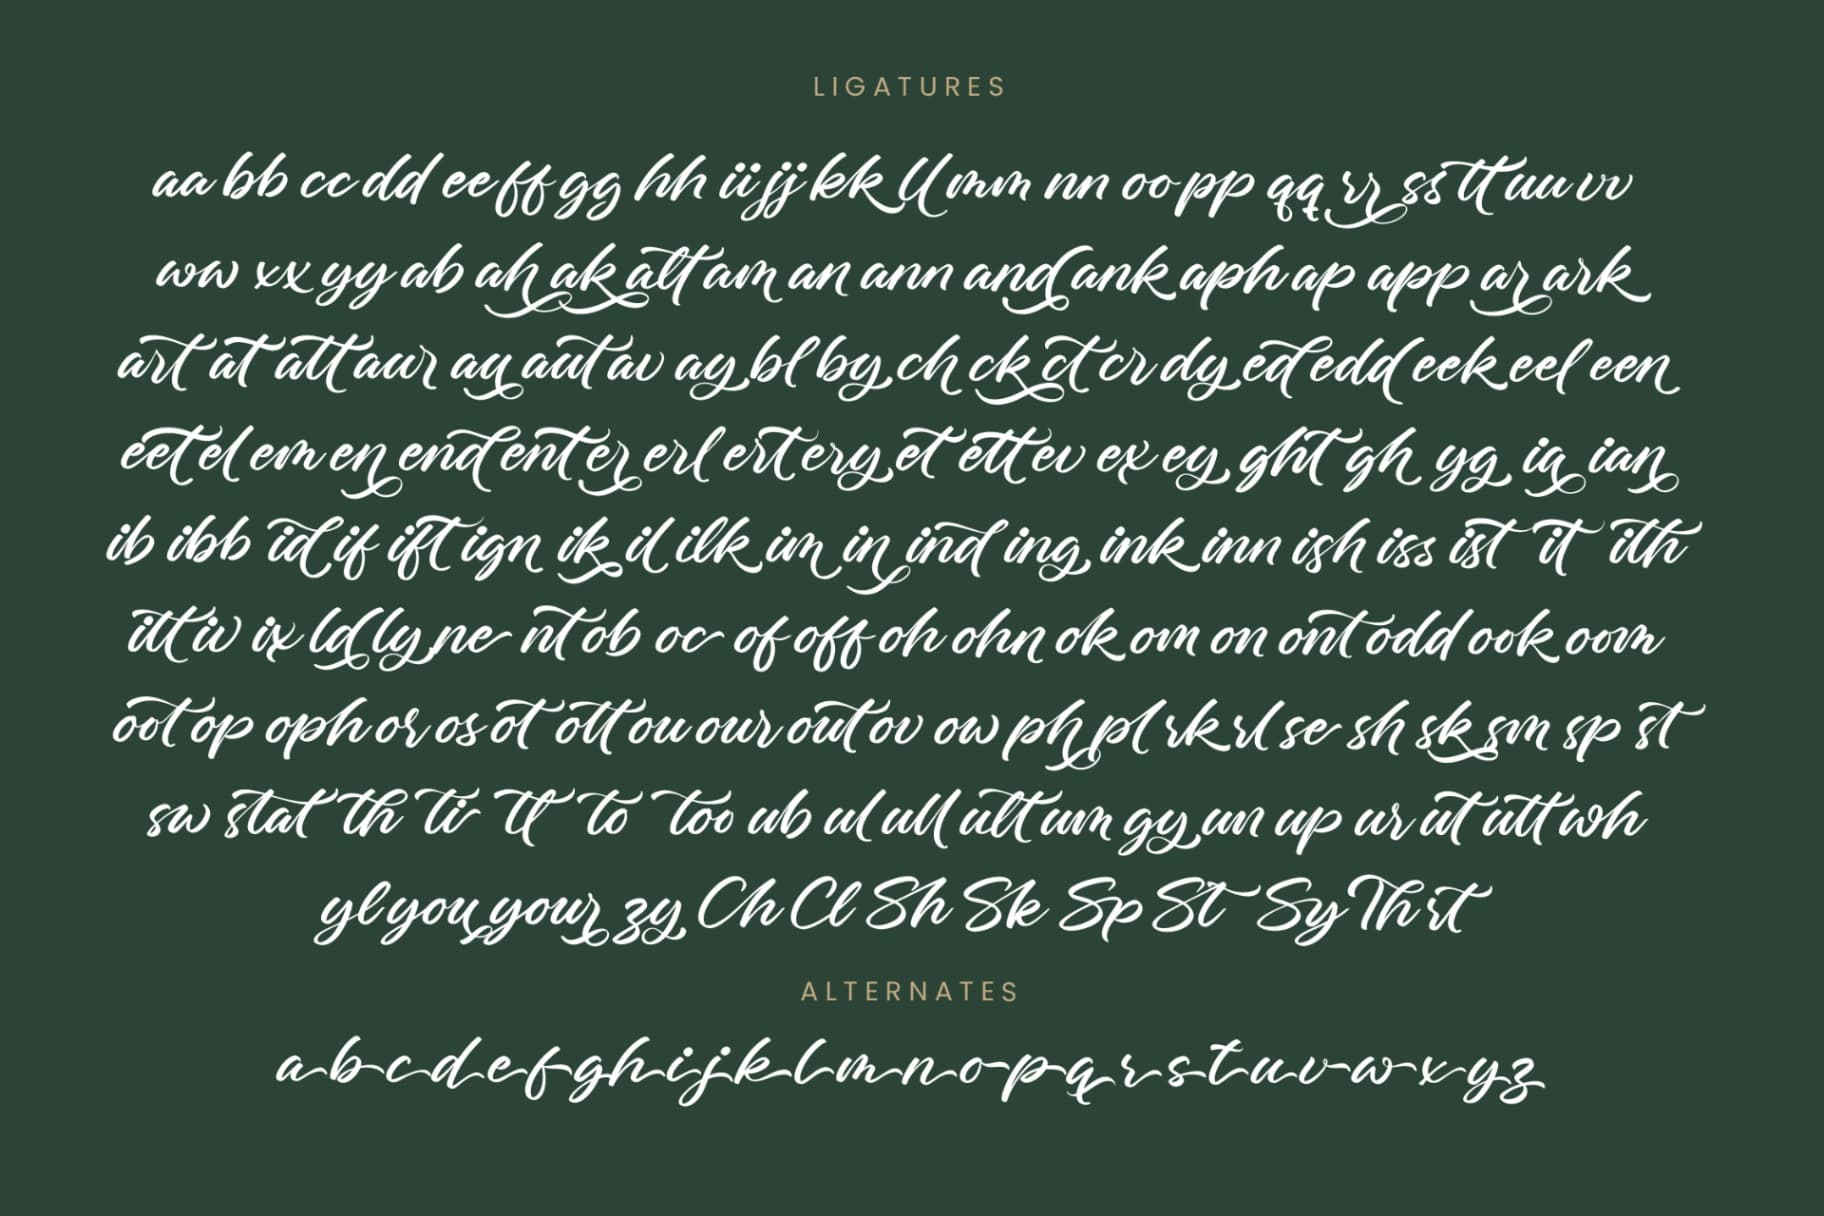 LIGATURES
aa bb cc dd ee ff gg hh ii jj kk ll mm nn oo pp qq rr ss tt uu vv
ww xx yy ab ah ak alt am an ann and ank aph ap app ar ark
art at att aur au aut av ay bl by ch ck ct cr dy ed edd eek eel een
eet el em en end ent er erl ert ery et ett ev ex ey ght gh yg ia ian
ib ibb id if ift ign ik il ilk im in ind ing ink inn ish iss ist it ith
itt iv ix ld ly ne nt ob oc of off oh ohn ok om on ont odd ook oom
oot op oph or os ot ott ou our out ov ow ph pl rk rl se sh sk sm sp st
sw stat th ti tl to too ub ul ull ult um gy un up ur ut utt wh
yl you your zy Ch Cl Sh Sk Sp St Sy Th rt
ALTERNATES
a b c d e f g h i j k l m n o p q r s t u v w x y z